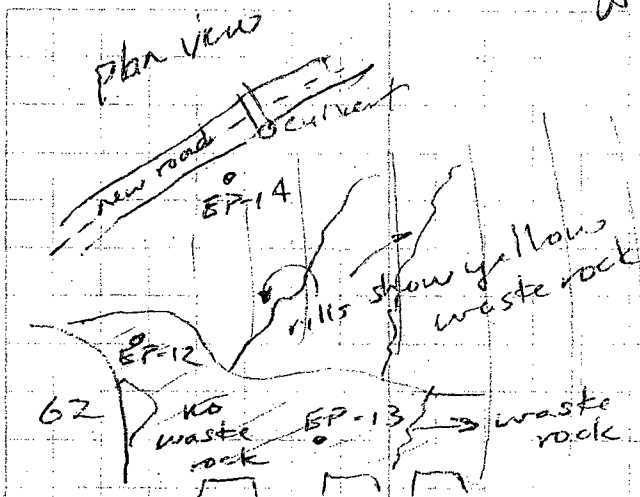 plan view
culvert
new road
EP-14
rills show yellow
waste rock
EP-12
62
no
waste
rock
EP-13
waste
rock